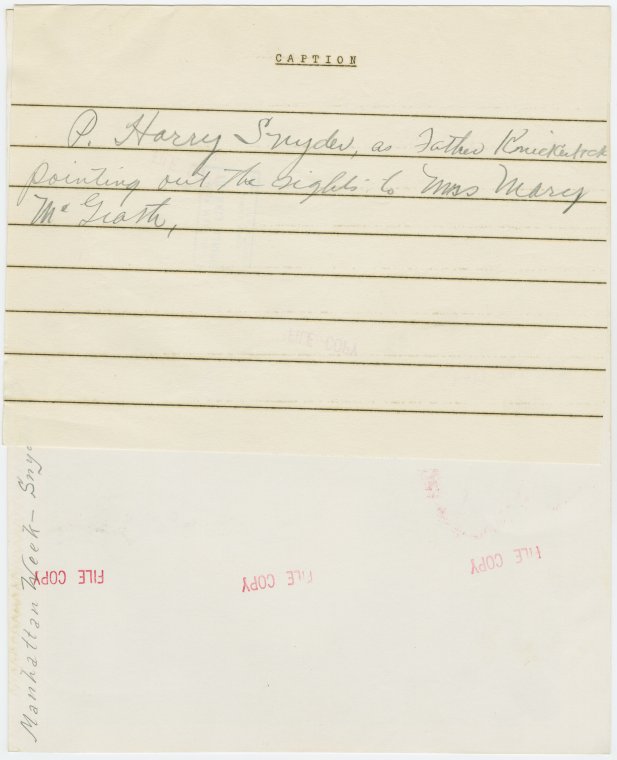 CAPTION
P. Harry Snyder, as Father Knickerbock
pointing out the sights to Mrs Mary
McGrath,
FILE COPY
FILE COPY
FILE COPY
FILE COPY
Manhattan Week - Sny